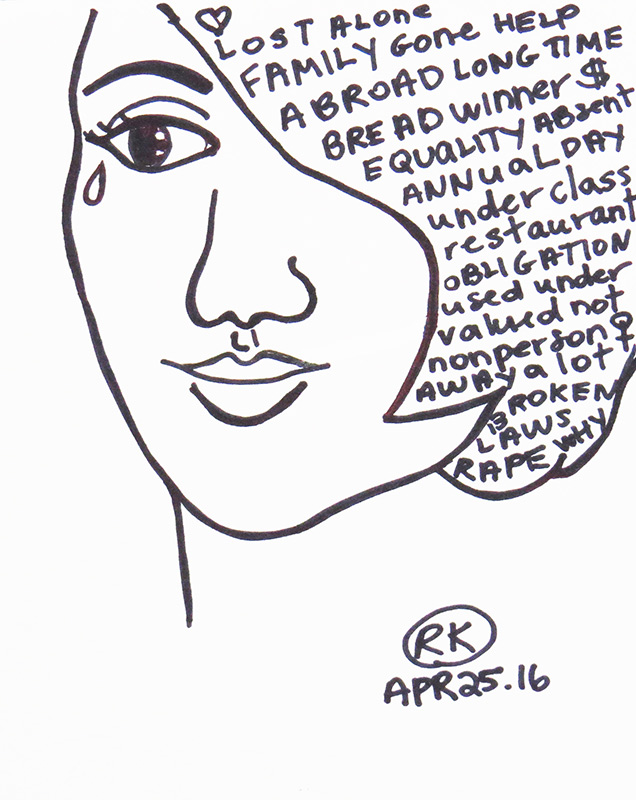 ♡
LOST ALONE
FAMILY GONE HELP
ABROAD LONG TIME
BREADWINNER $
EQUALITY ABSENT
ANNUAL DAY
under class
restaurant
OBLIGATION
used under
valued not
nonperson ♀
AWAY a lot
BROKEN
LAWS WHY
RAPE
RK
APR25.16